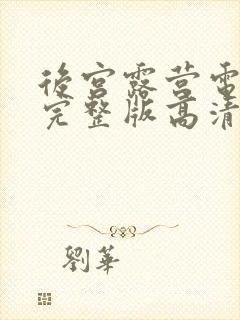 後宮露营電
完整版高清
劉華